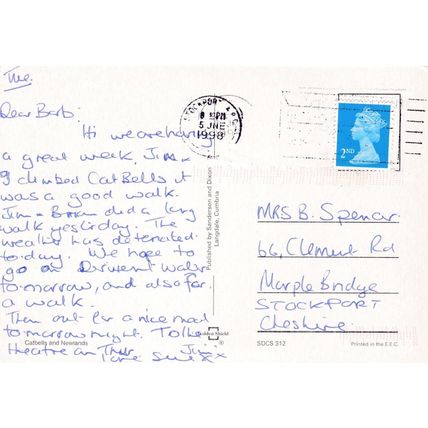 Tue.
Dear Barb.
Hi we are having
a great week. Jim &
I climbed CatBells it
was a good walk.
Jim & Brian did a long
walk yestiday. The
weather has deterated
to-day. We hope to
go on Derwent Water
to-morrow, and also for
a walk.
Then out for a nice meal
to-morrow night. To the
theatre on Thur
Love Sue & Jim xx
Catbells and Newlands
Published by Sanderson and Dixon
Langdale, Cumbria
STOCKPORT
5 JNE
1998
2ND
MRS B. Spencer.
66, Clement Rd
Marple Bridge
STOCKPORT
Cheshire.
SDCS 312
Printed in the E.E.C.